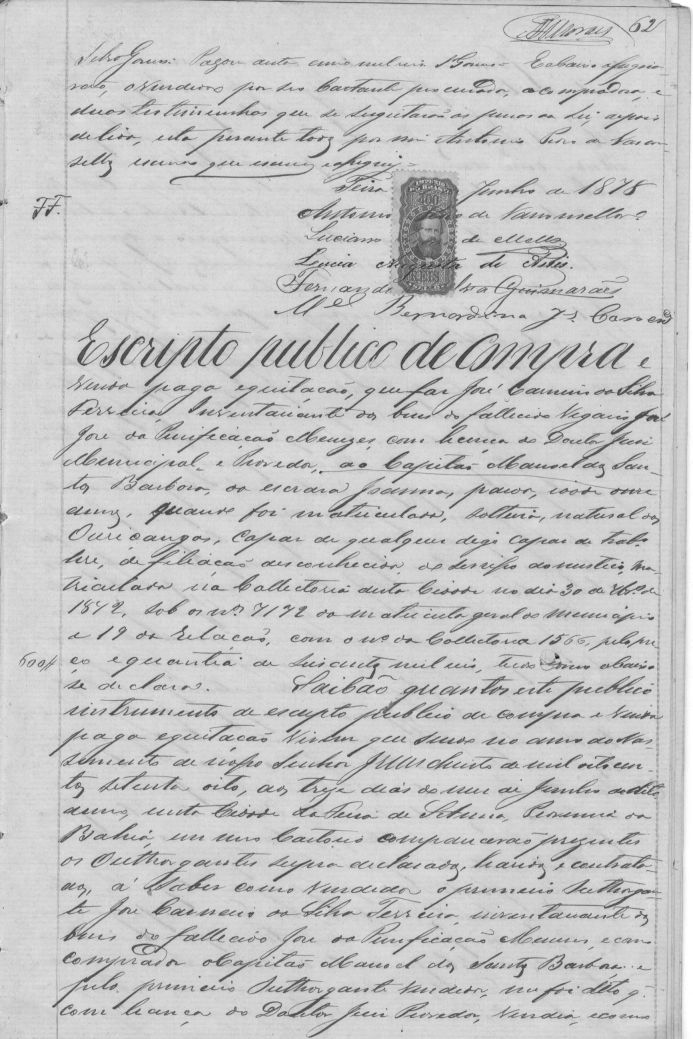 62
Sello Gomes. Pagou
o vendedor por seu bastante procurador, a comprador, e
duas testemunhas que se sugeitarão as penas da Lei, depois
de lido, esta perante todos por mim Antonio
escrivão que escrevi e assignei
Feira Junho de 1878
Antonio de Vasconcellos
FF.
IMPERIO DO BRASIL
Luciano de Mello
Lucia Augusta de Assis.
Fernando Guimarães
Mel Bernardino Je
Escripto publico de Compra e
venda paga e quitação, que faz José Carneiro da Silva
Ferreira Inventariante dos bens do fallecido Vegario José
José da Purificação Menezes, com licença do Doutor Juiz
Municipal e Provedor, ao Capitão Manoel dos San-
tos Barboza, da escrava Joanna, parda, idade onze
annos, quando foi matriculada, solteira, natural dos
Ouriçangas, capaz de qualquer digo capaz de traba-
lho, de filiação desconhecida, de serviço domestico, ma-
triculada na Collectoria desta Cidade no dia 30 de de
1872, sob os nos 7172 da matricula geral do Municipio
e 19 da Relação, com o no da Collectoria 1566, pelo pre-
600$
ço e quantia de seiscentos mil reis, tudo como abaixo
se declara. Saibão quantos este publico
instrumento de escripto publico de compra e venda
paga e quitação virem que sendo no anno do Nas-
cimento de nosso Senhor Jesus Christo de mil oitocen-
tos setenta oito, aos treze dias do mez de Junho do dito
anno, nesta Cidade da Feira de Santa Anna, Provincia da
Bahia, em meu Cartorio comparecerão prezentes
os Outhorgantes supra declarados, havidos e contrata-
dos, á saber como vendedor o primeiro Outhorgan-
te José Carneiro da Silva Ferreira, inventariante dos
bens do fallecido José da Purificação Menezes, e como
comprador o Capitão Manoel dos Santos Barboza e
pelo primeiro Outhorgante vendedor, me foi dito q.
com licença do Doutor Juiz Provedor, vendia, e como